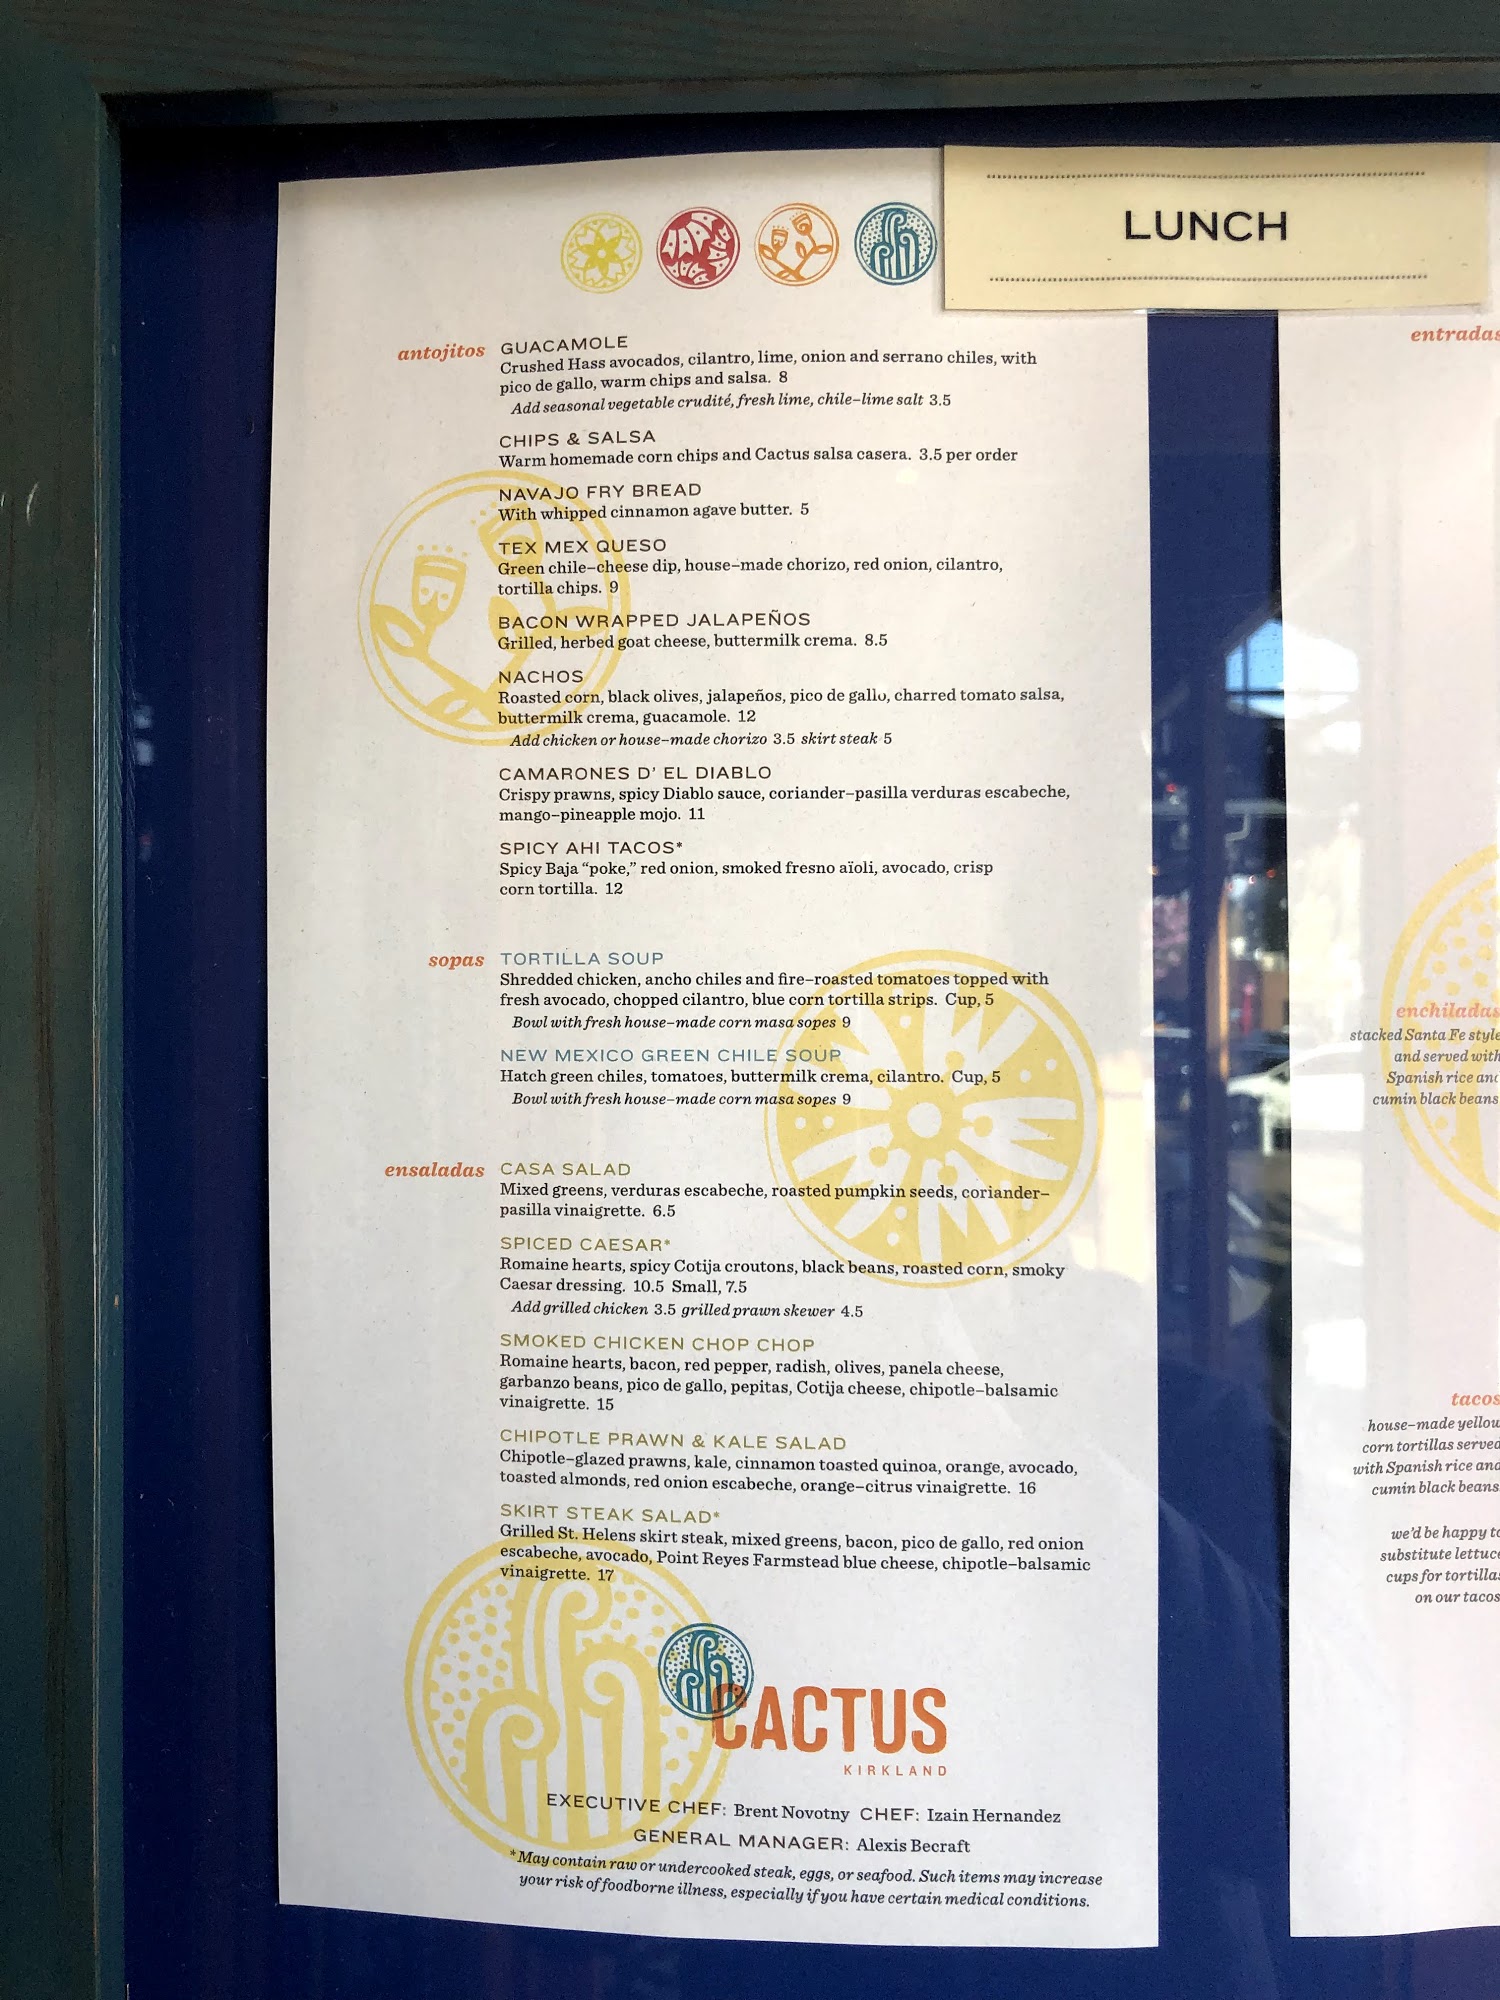 LUNCH
antojitos
GUACAMOLE
Crushed Hass avocados, cilantro, lime, onion and serrano chiles, with
pico de gallo, warm chips and salsa. 8
Add seasonal vegetable crudité, fresh lime, chile-lime salt 3.5
CHIPS & SALSA
Warm homemade corn chips and Cactus salsa casera. 3.5 per order
NAVAJO FRY BREAD
With whipped cinnamon agave butter. 5
TEX MEX QUESO
Green chile-cheese dip, house-made chorizo, red onion, cilantro,
tortilla chips. 9
BACON WRAPPED JALAPEÑOS
Grilled, herbed goat cheese, buttermilk crema. 8.5
NACHOS
Roasted corn, black olives, jalapeños, pico de gallo, charred tomato salsa,
buttermilk crema, guacamole. 12
Add chicken or house-made chorizo 3.5 skirt steak 5
CAMARONES D' EL DIABLO
Crispy prawns, spicy Diablo sauce, coriander-pasilla verduras escabeche,
mango-pineapple mojo. 11
SPICY AHI TACOS*
Spicy Baja “poke,” red onion, smoked fresno aïoli, avocado, crisp
corn tortilla. 12
sopas
TORTILLA SOUP
Shredded chicken, ancho chiles and fire-roasted tomatoes topped with
fresh avocado, chopped cilantro, blue corn tortilla strips. Cup, 5
Bowl with fresh house-made corn masa sopes 9
NEW MEXICO GREEN CHILE SOUP
Hatch green chiles, tomatoes, buttermilk crema, cilantro. Cup, 5
Bowl with fresh house-made corn masa sopes 9
ensaladas
CASA SALAD
Mixed greens, verduras escabeche, roasted pumpkin seeds, coriander-
pasilla vinaigrette. 6.5
SPICED CAESAR*
Romaine hearts, spicy Cotija croutons, black beans, roasted corn, smoky
Caesar dressing. 10.5 Small, 7.5
Add grilled chicken 3.5 grilled prawn skewer 4.5
SMOKED CHICKEN CHOP CHOP
Romaine hearts, bacon, red pepper, radish, olives, panela cheese,
garbanzo beans, pico de gallo, pepitas, Cotija cheese, chipotle-balsamic
vinaigrette. 15
CHIPOTLE PRAWN & KALE SALAD
Chipotle-glazed prawns, kale, cinnamon toasted quinoa, orange, avocado,
toasted almonds, red onion escabeche, orange-citrus vinaigrette. 16
SKIRT STEAK SALAD*
Grilled St. Helens skirt steak, mixed greens, bacon, pico de gallo, red onion
escabeche, avocado, Point Reyes Farmstead blue cheese, chipotle-balsamic
vinaigrette. 17
CACTUS
KIRKLAND
EXECUTIVE CHEF: Brent Novotny CHEF: Izain Hernandez
GENERAL MANAGER: Alexis Becraft
*May contain raw or undercooked steak, eggs, or seafood. Such items may increase
your risk of foodborne illness, especially if you have certain medical conditions.
entradas
enchiladas
stacked Santa Fe style
and served with
Spanish rice and
cumin black beans
tacos
house-made yellow
corn tortillas served
with Spanish rice and
cumin black beans.
we'd be happy to
substitute lettuce
cups for tortillas
on our tacos